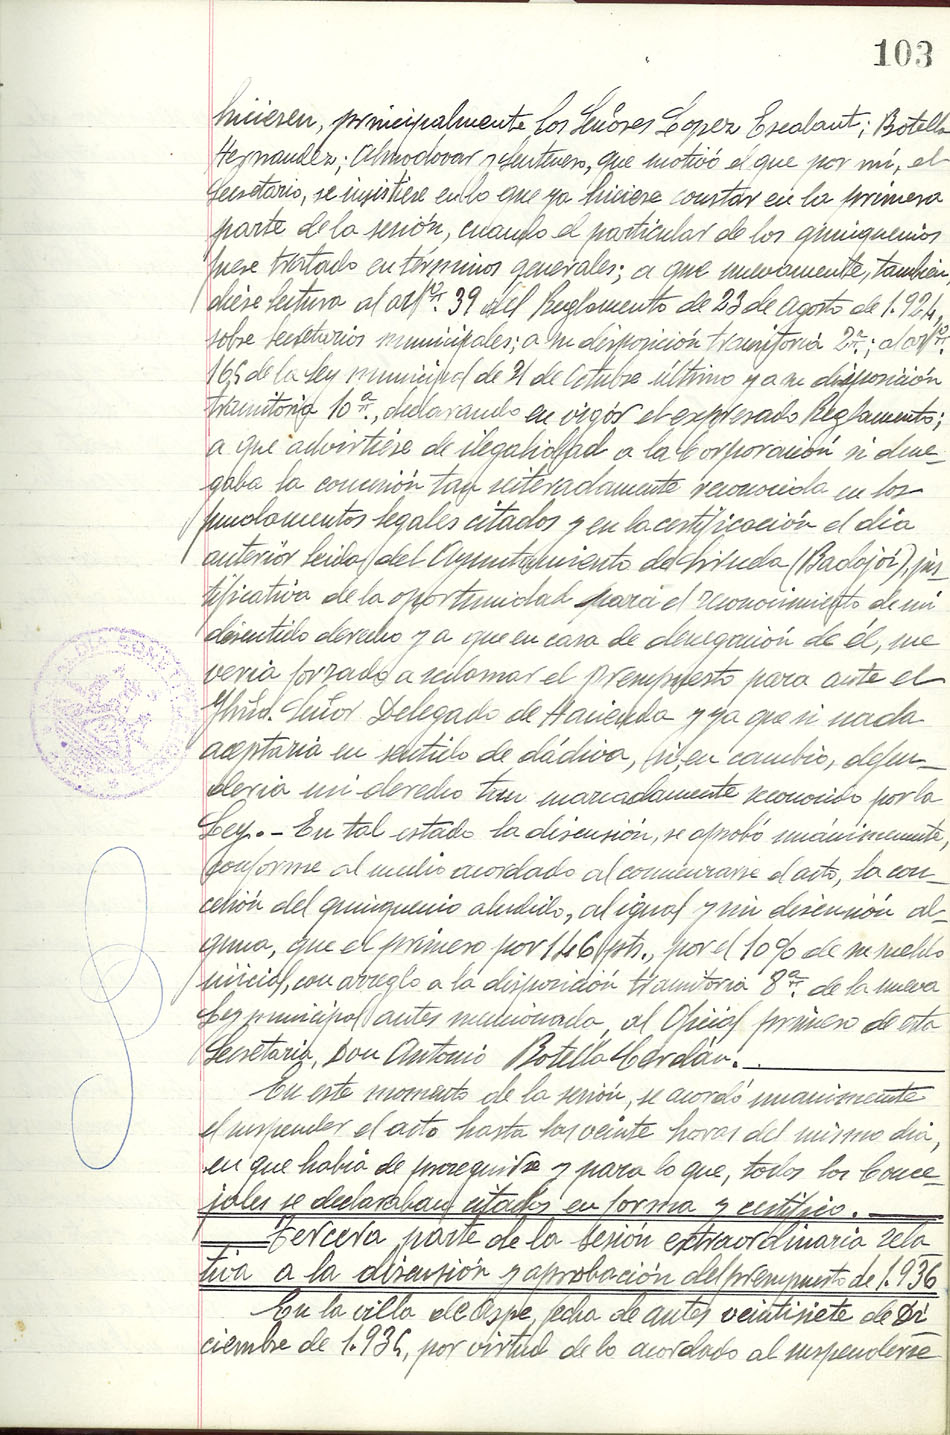 103
hiciesen, principalmente los Señores López Escalant; Botella
Hernandez; Almodovar y Sentnero, que motivó el que por mí, el
Secretario, se insistiese en lo que ya hiciese constar en la primera
parte de la sesión, cuando el particular de los quinquenios
fuese tratado en términos generales; a que nuevamente, tambien,
diese lectura al artº. 39 del Reglamento de 23 de Agosto de 1.924,
sobre Secretarios municipales; a su disposición transitoria 2ª.; al artº.
165 de la Ley municipal de 31 de Octubre último y a su disposición
transitoria 10ª., declarando en vigór el expresado Reglamento;
a que advirtiése de ilegalidad a la Corporación si dene-
gaba la concesión tan reiteradamente reconocida en los
fundamentos legales citados y en la certificación el dia
anterior leida, del Ayuntamiento de (Badajoz), jus-
tificativa de la oportunidad para el reconocimiento de mi
discutido derecho y a que en caso de denegación de él, me
veria forzado a reclamar el Presupuesto para ante el
Iltmo. Señor Delegado de Hacienda y ya que si nada
aceptaria en sentido de dádiva, si, en cambio, defen-
deria mi derecho tan marcadamente reconocido por la
Ley.- En tal estado la discusión, se aprobó unánimemente,
conforme al medio acordado al comenzarse el acto, la con-
cesión del quinquenio aludido, al igual y sin discusión al-
guna, que el primero por 146 pts., por el 10% de su sueldo
inicial, con arreglo a la disposición transitoria 8ª. de la nueva
Ley municipal antes mencionada, al Oficial primero de esta
Secretaria, Don Antonio Botella Cerdán.
En este momento de la sesión, se acordó unanimemente
el suspender el acto hasta las veinte horas del mismo dia,
en que habia de proseguirse y para lo que, todos los Conce-
jales se declaraban citados en forma y certifico.
Tercera parte de la sesión extraordinaria rela
tiva a la discusión y aprobación del presupuesto de 1.936
En la villa de Aspe, fecha de antes veintisiete de Di
ciembre de 1.935, por virtud de lo acordado al suspenderse